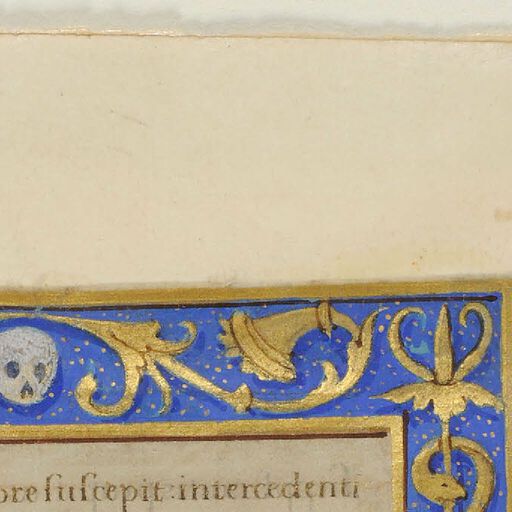 ore suscepit: intercedenti